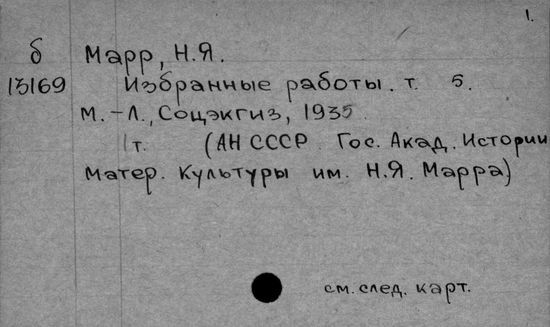 1.
б Марр, Н.Я.
13169 Избранные работы. т. 5.
М.-Л., Соцэкгиз, 1935.
1 т. (АН СССР. Гос. Акад. Истории
Матер. Культуры им. Н.Я. Марра)
см. след. карт.